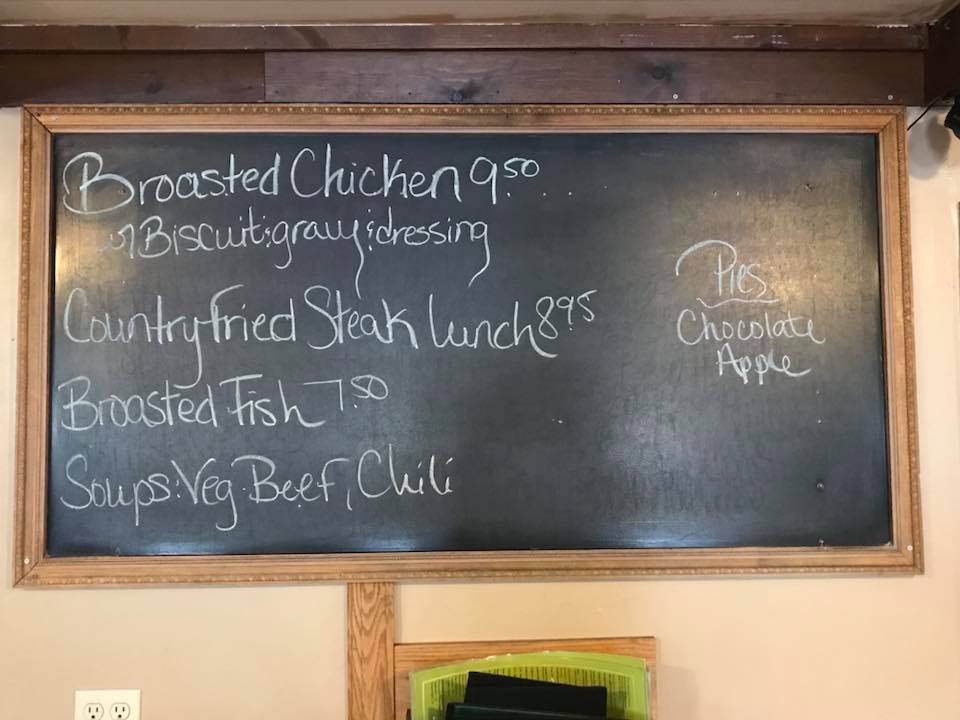 Broasted Chicken 9.50
w/ Biscuit; gravy & dressing
Country Fried Steak Lunch 8.95
Broasted Fish 7.50
Soups: Veg Beef, Chili
Pies
Chocolate
Apple